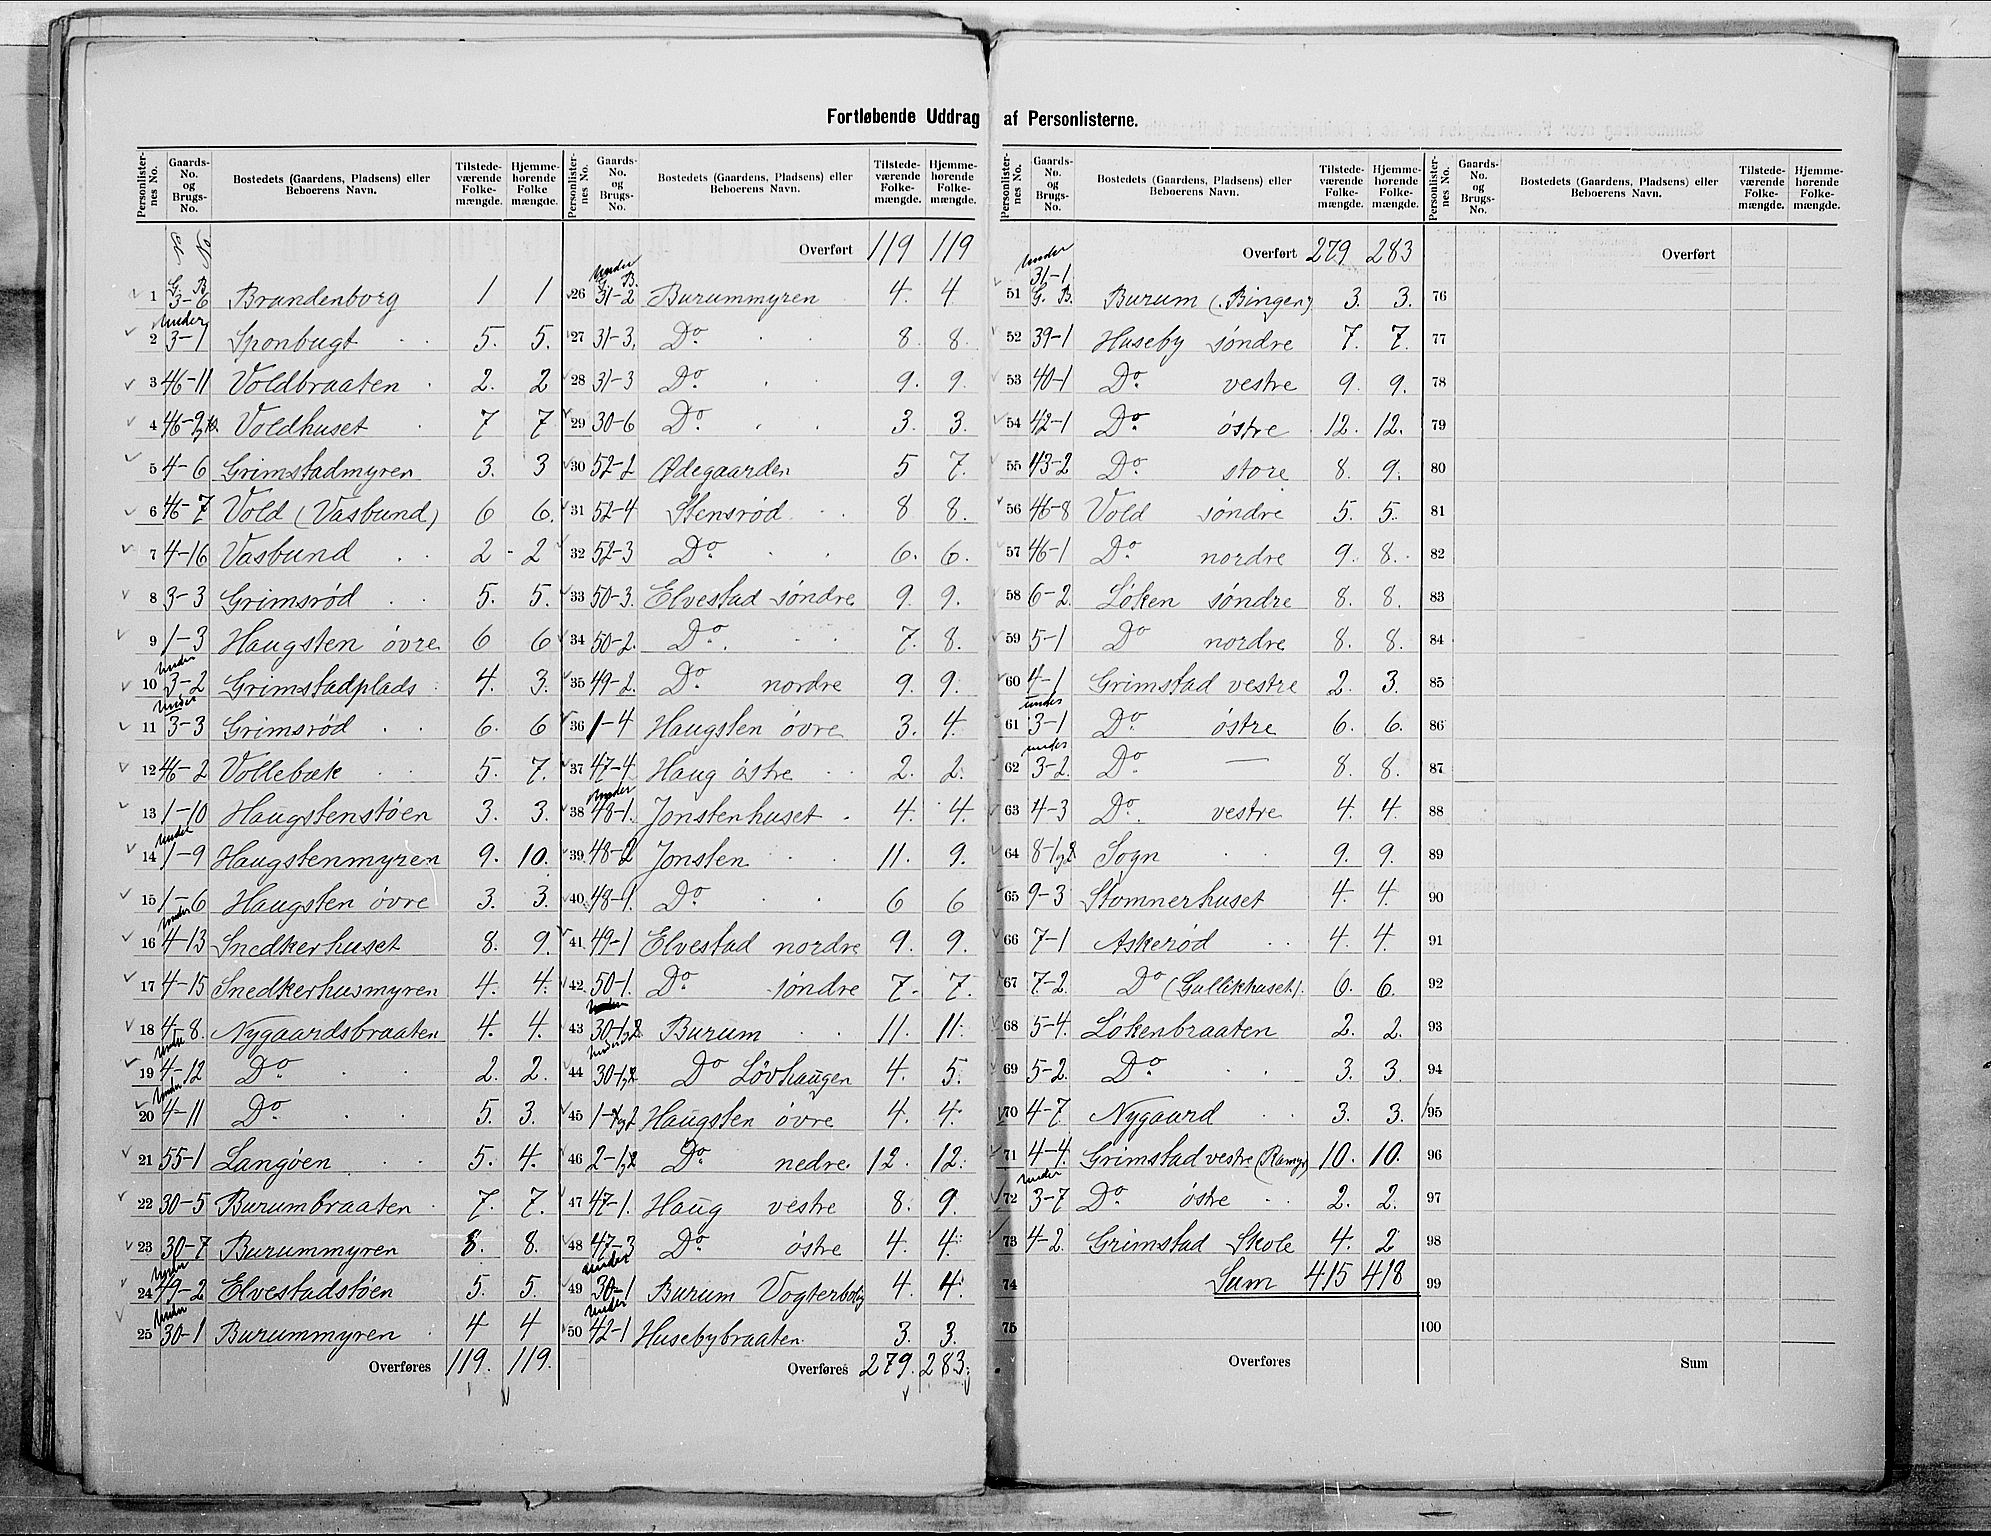 Fortløbende Uddrag af Personlisterne.
Personlister-nes No. | Gaards-No. og Brugs-No. | Bostedets (Gaardens, Pladsens) eller Beboerens Navn. | Tilstede-værende Folke-mængde. | Hjemme-hørende Folke mængde.
No No
G. B.
1 3-6 Brandenborg 1 1
under
2 3-1 Sponbugt 5. 5.
3 46-11 Voldbraaten 2. 2
4 46-9,10. Voldhuset 7 7
5 4-6 Grimstadmyren 3. 3
6 46-7 Vold (Vasbund) 6 6.
7 4-16 Vasbund 2 - 2
8 3-3 Grimsrød 5. 5.
9 1-3 Haugsten övre. 6 6
under
10 3-2 Grimstadplads 4. 3.
under
11 3-3 Grimsrød 6. 6
12 46-2 Vollebæk 5. 7.
13 1-10 Haugstenstøen 3. 3.
under
14 1-9 Haugstenmyren 9. 10.
15 1-6 Haugsten øvre 3. 3.
under
16 4-13 Snedkerhuset 8. 9.
17 4-15 Snedkerhusmyren 4. 4.
18 4-8. Nygaardsbraaten 4. 4.
under
19 4-12 Do 2. 2.
under
20 4-11 Do 5. 3.
21 55-1 Langøen 5. 4.
22 30-5 Burumbraaten 7. 7.
23 30-7 Burummyren 8. 8.
under
24 49-2 Elvestadstøen 5. 5.
under
25 30-1 Burummyren 4 4
Overføres 119. 119.
Personlister-nes No. | Gaards-No. og Brugs-No. | Bostedets (Gaardens, Pladsens) eller Beboerens Navn. | Tilstede-værende Folke-mængde. | Hjemme-hørende Folke-mængde.
Overført 119 119
under
G. B.
26 31-2 Burummyren 4. 4
27 31-3. Do 8. 8.
28 31-3 Do 9. 9.
29 30-6 Do 3. 3.
30 52-2 Ødegaarden 5 7.
31 52-4 Stensrød 8 8.
32 52-3 Do 6. 6.
33 50-3. Elvestad søndre 9. 9.
34 50-2. Do. 7. 8.
35 49-2. Do nordre 9. 9.
36 1-4 Haugsten øvre 3. 4.
37 47-4. Haug østre 2. 2.
under
38 48-1. Jonstenhuset 4. 4.
39 48-2 Jonsten 11. 9.
40 48-1. Do 6 6
41 49-1 Elvestad nordre 9. 9.
42 50-1. Do søndre 7. 7.
43 30-1,2 Burum 11. 11.
under
44 30-1,2 Do Lövhaugen 4. 5.
45 1-1,2 Haugsten övre 4. 4.
46 2-1,2 Do nedre. 12. 12.
47 47-1. Haug vestre 8. 9.
48 47-3 Do östre 4. 4.
under
49 30-1 Burum Vogterbolig 4. 4.
under
50 42-1 Husebybraaten 3. 3.
Overføres 279. 283.
Personlister-nes No. | Gaards-No. og Brugs-No. | Bostedets (Gaardens, Pladsens) eller Beboerens Navn. | Tilstede-værende Folke-mængde. | Hjemme-hørende Folke-mængde.
Overført 279 283
under
31-1
51 G. B. Burum (Bingen) 3. 3.
52 39-1 Huseby søndre 7. 7.
53 40-1 Do vestre 9. 9.
54 42-1 Do østre 12. 12.
55 43-2 Do store 8. 9.
56 46-8 Vold søndre 5. 5.
57 46-1 Do nordre 9. 8.
58 6-2. Løken søndre 8. 8.
59 5-1 Do nordre 8. 8.
60 4-1 Grimstad vestre 2. 3.
under
61 3-1 Do östre 6. 6.
under
62 3-2. Do — 8. 8.
63 4-3 Do. vestre 4. 4
64 8-1,2 Sogn 9. 9.
65 9-3 Stomnerhuset 4. 4.
66 7-1 Askerød 4. 4.
67 7-2. Do (Gullikhuset). 6. 6.
68 5-4. Løkenbraaten 2. 2.
69 5-2. Do 3. 3.
70 4-7. Nygaard 3. 3.
71 4-4. Grimstad vestre 10. 10.
under
72 3-7 Do östre 2. 2.
73 4-2. Grimstad Skole 4. 2
74 Sum 415 418
75
Overføres
Personlister-nes No. | Gaards-No. og Brugs-No. | Bostedets (Gaardens, Pladsens) eller Beboerens Navn. | Tilstede-værende Folke-mængde. | Hjemme-hørende Folke-mængde.
Overført
76
77
78
79
80
81
82
83
84
85
86
87
88
89
90
91
92
93
94
95
96
97
98
99
100
Sum